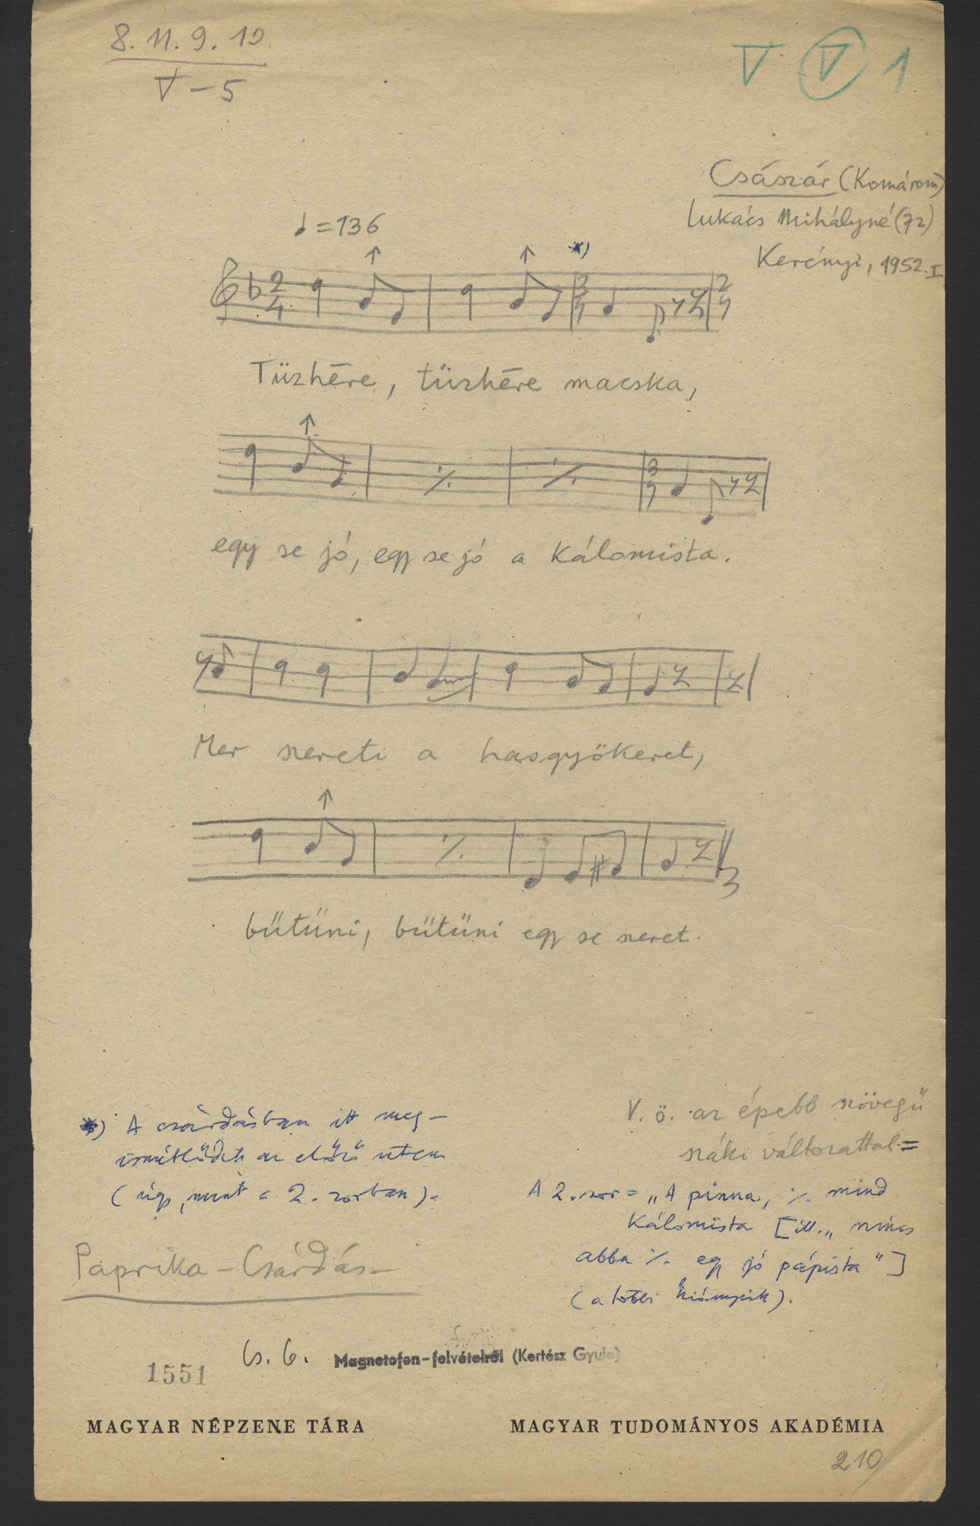 8. 11. 9. 10
V – 5
V V 1
Császár (Komárom)
Lukács Mihályné (72)
Kerényi, 1952. I
♩ = 136
*)
Tüzhēre, tüzhēre macska,
egy se jó, egy se jó a kálomista.
Mer szereti a hasgyökeret,
bűtűni, bűtűni egy se szeret.
*) A csárdásban itt meg-
ismétlődik az előző ütem
(úgy, mint a 2. sorban).
V. ö. az épebb szövegű
száki változattal =
A 2. sor = „A pinna, ·/. mind
kálomista [ill. „ nincs
abba ·/. egy jó pápista"]
(a többi hiányzik).
Paprika – Csárdás –
Cs. G.
Magnetofon-felvételről (Kertész Gyula)
1551
MAGYAR NÉPZENE TÁRA
MAGYAR TUDOMÁNYOS AKADÉMIA
210